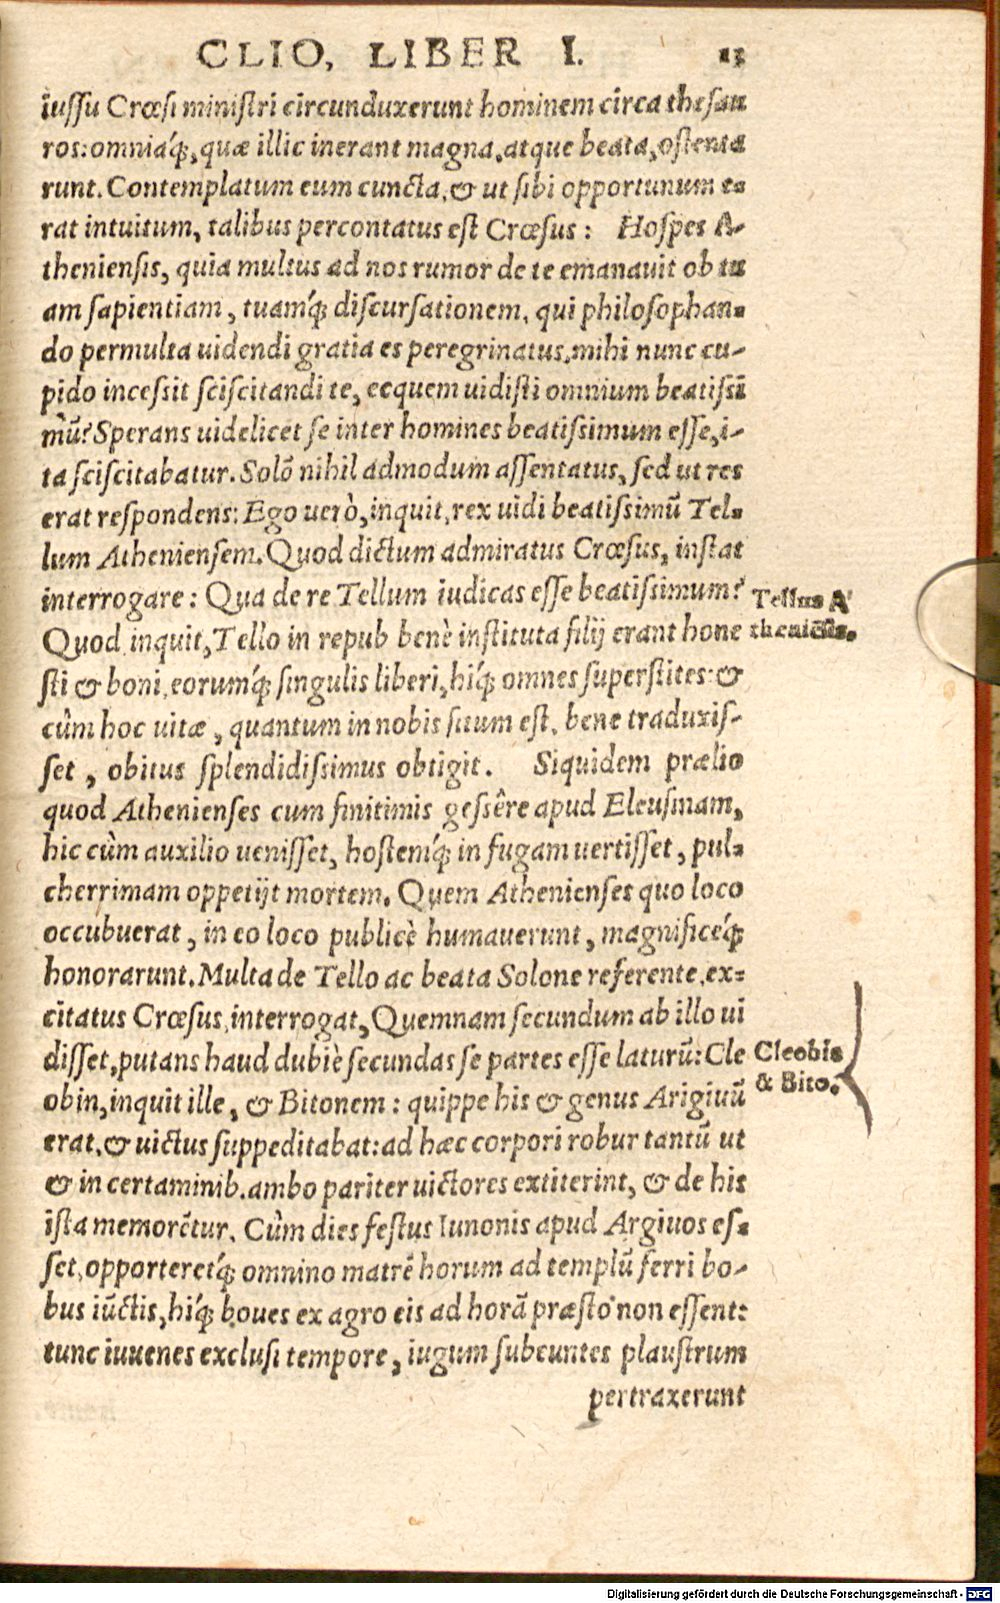 CLIO, LIBER I. 13
iussu Crœsi ministri circunduxerunt hominem circa thesau
ros: omniaq́;, quæ illic inerant magna, atque beata, ostenta
runt. Contemplatum eum cuncta, & ut sibi opportunum e-
rat intuitum, talibus percontatus est Crœsus: Hospes A-
theniensis, quia multus ad nos rumor de te emanauit ob tu
am sapientiam, tuamq́; discursationem, qui philosophan-
do permulta uidendi gratia es peregrinatus, mihi nunc cu-
pido incessit sciscitandi te, ecquem uidisti omnium beatissi
mũ? Sperans uidelicet se inter homines beatissimum esse, i-
ta sciscitabatur. Solõ nihil admodum assentatus, sed ut res
erat respondens: Ego uerò, inquit, rex uidi beatissimũ Tel-
lum Atheniensem. Quod dictum admiratus Crœsus, instat
interrogare: Qua de re Tellum iudicas esse beatissimum?
Tellus A
theniẽsis.
Quod inquit, Tello in repub benè instituta filij erant hone
sti & boni, eorumq́; singulis liberi, hiq́; omnes superstites: &
cûm hoc uitæ, quantum in nobis situm est, bene traduxis-
set, obitus splendidissimus obtigit. Siquidem prælio
quod Athenienses cum finitimis gessêre apud Eleusinam,
hic cùm auxilio uenisset, hostemq́; in fugam uertisset, pul-
cherrimam oppetijt mortem. Quem Athenienses quo loco
occubuerat, in eo loco publicè humauerunt, magnificeq́;
honorarunt. Multa de Tello ac beata Solone referente, ex-
citatus Crœsus, interrogat, Quemnam secundum ab illo ui
disset, putans haud dubiè secundas se partes esse laturũ: Cle
Cleobis
& Bito.
obin, inquit ille, & Bitonem: quippe his & genus Arigiuũ
erat, & uictus suppeditabat: ad hæc corpori robur tantũ ut
& in certaminib. ambo pariter uictores extiterint, & de his
ista memorẽtur. Cûm dies festus Iunonis apud Argiuos es-
set, opporteretq́; omnino matrẽ horum ad templũ ferri bo-
bus iũctis, hiq́; boues ex agro eis ad horã præsto non essent:
tunc iuuenes exclusi tempore, iugum subeuntes plaustrum
pertraxerunt
Digitalisierung gefördert durch die Deutsche Forschungsgemeinschaft - DFG